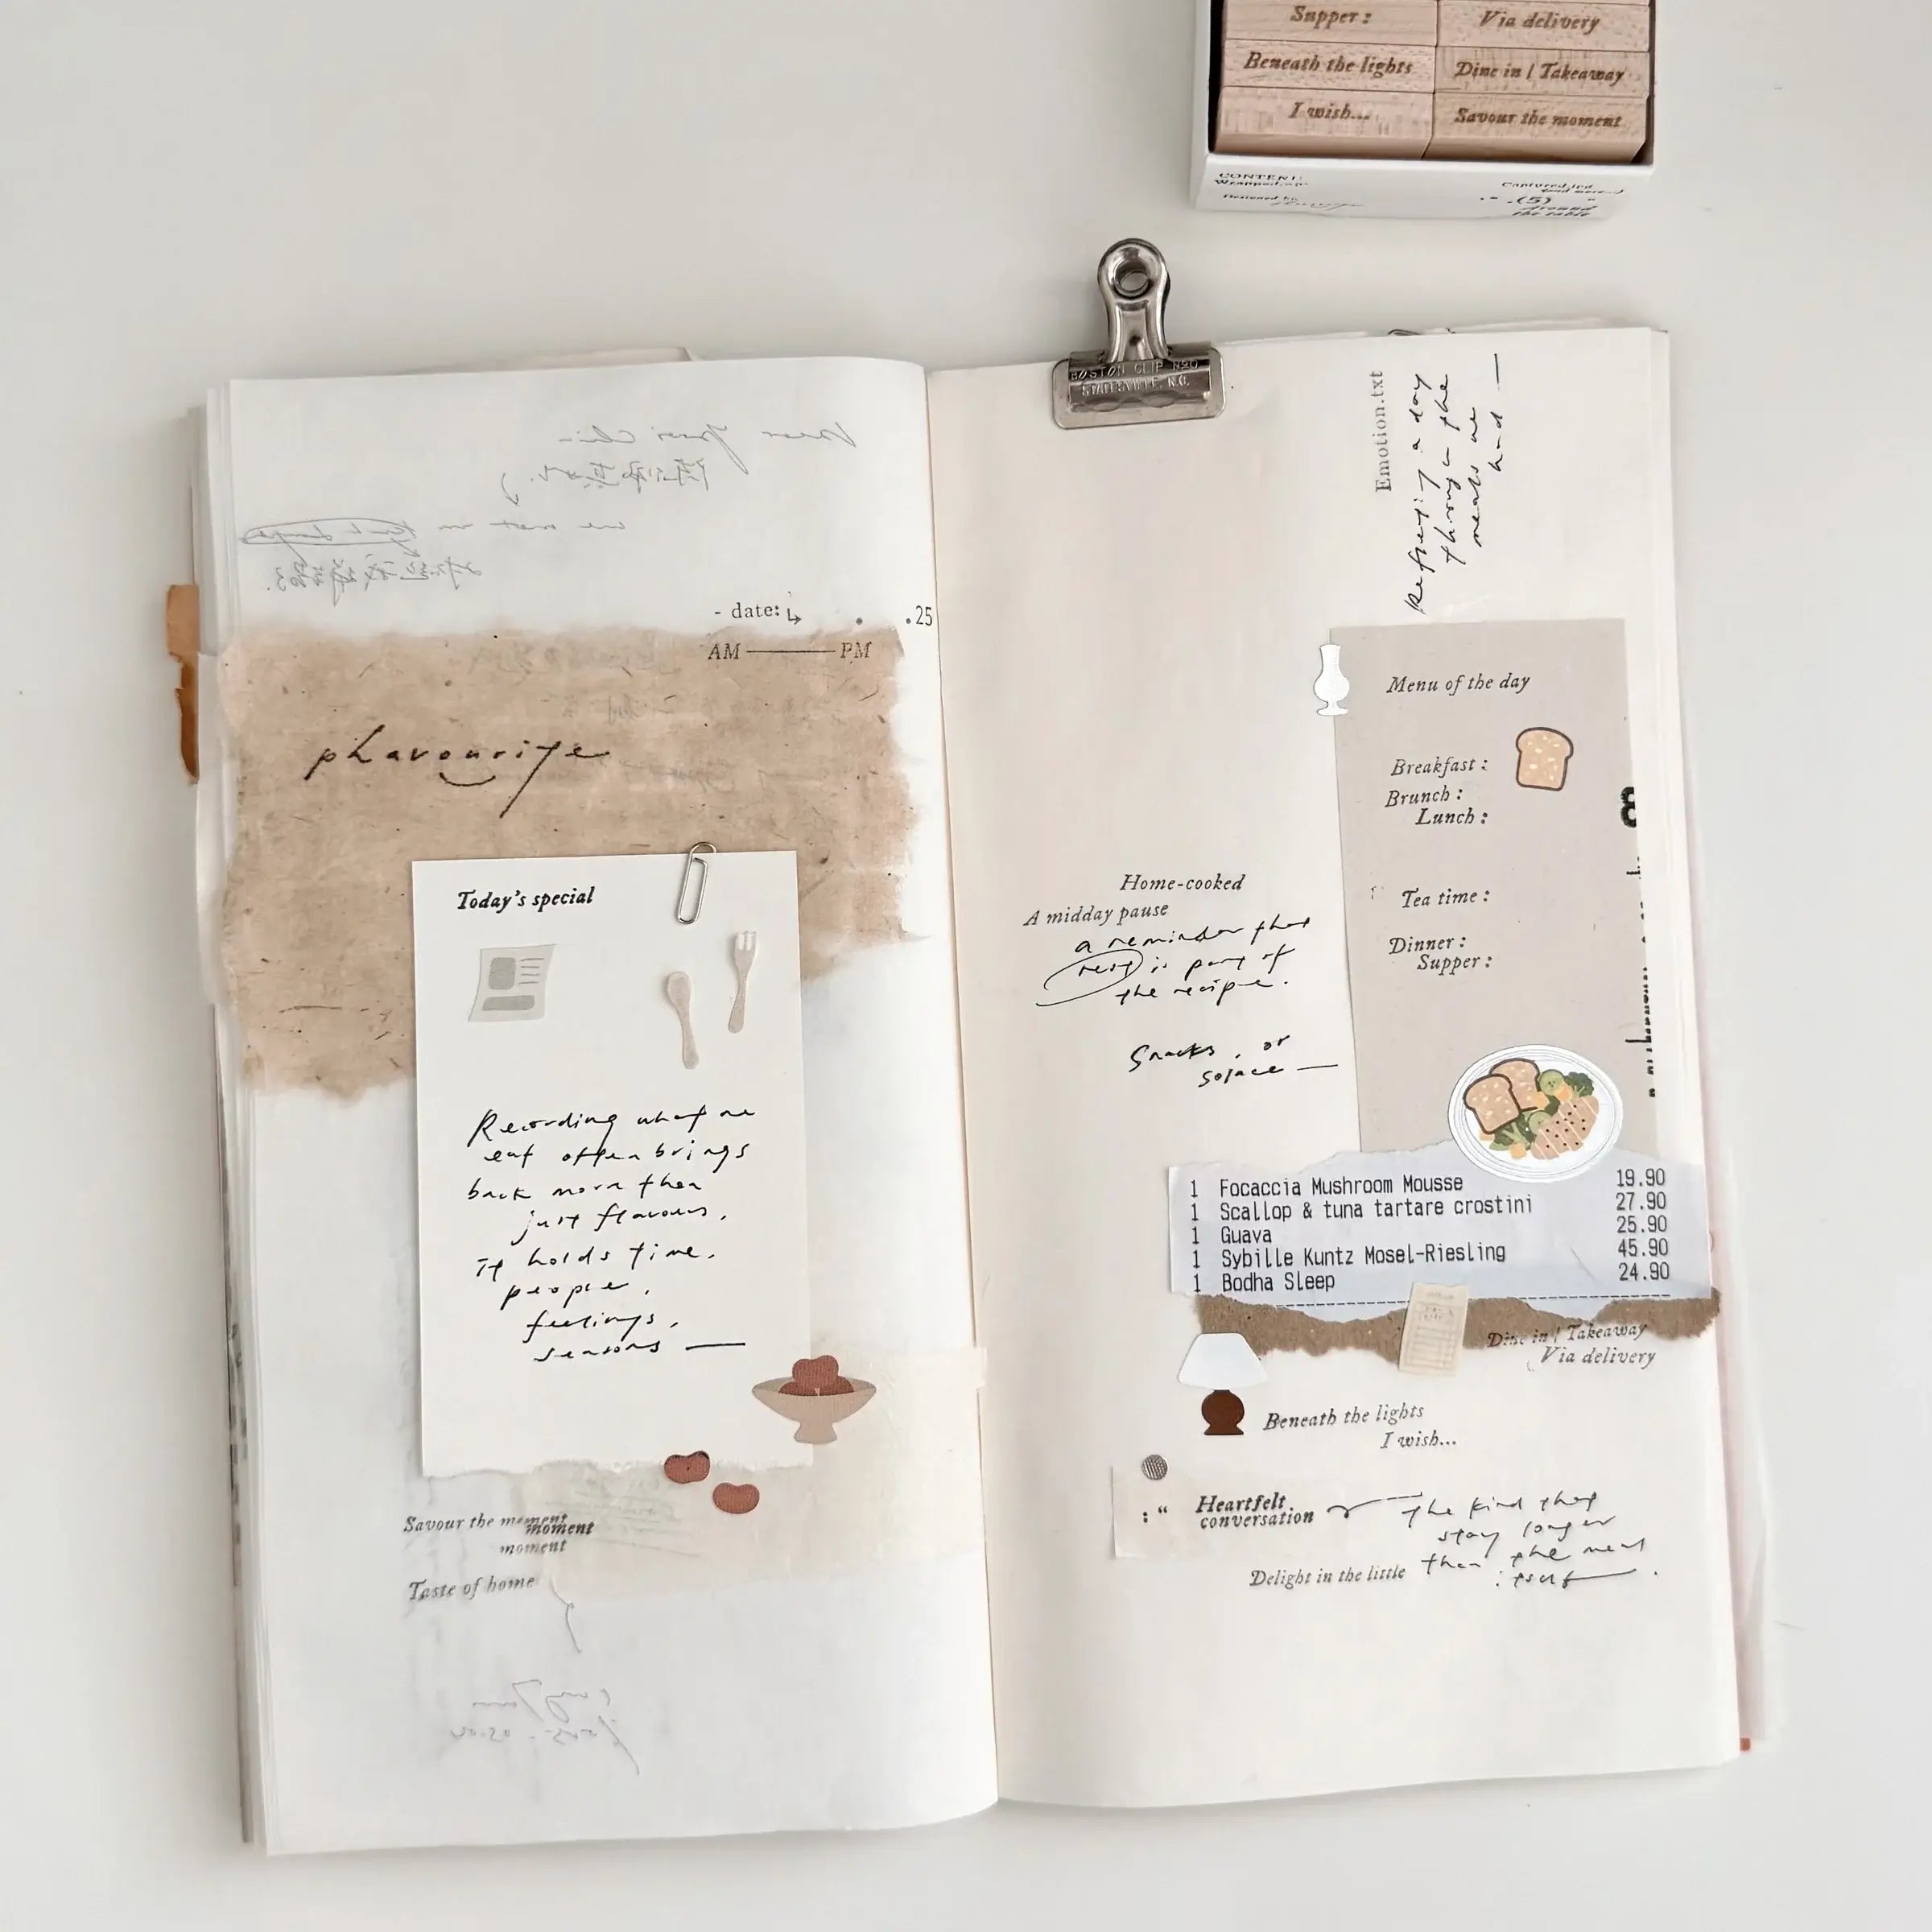 Supper :
Via delivery
Beneath the lights
Dine in / Takeaway
I wish...
Savour the moment
CONTENT:
Designed by
(5)
Around
the table
BOSTON CLIP Nº0
STATESVILLE, N.C.
- date:
.25
AM
PM
phavourite
Today's special
Recording what we
eat often brings
back more than
just flavours,
it holds time,
people,
feelings,
seasons —
Savour the moment
moment
moment
Taste of home
Emotion.txt
a day
through the
meals we
had —
Menu of the day
Breakfast :
Brunch :
Lunch :
Tea time :
Dinner :
Supper :
Home-cooked
A midday pause
a reminder that
rest is part of
the recipe.
Snacks, or
solace —
1 Focaccia Mushroom Mousse 19.90
1 Scallop & tuna tartare crostini 27.90
1 Guava 25.90
1 Sybille Kuntz Mosel-Riesling 45.90
1 Bodha Sleep 24.90
Dine in / Takeaway
Via delivery
Beneath the lights
I wish...
:“ Heartfelt
conversation
the kind that
stay longer
than the meal
itself.
Delight in the little